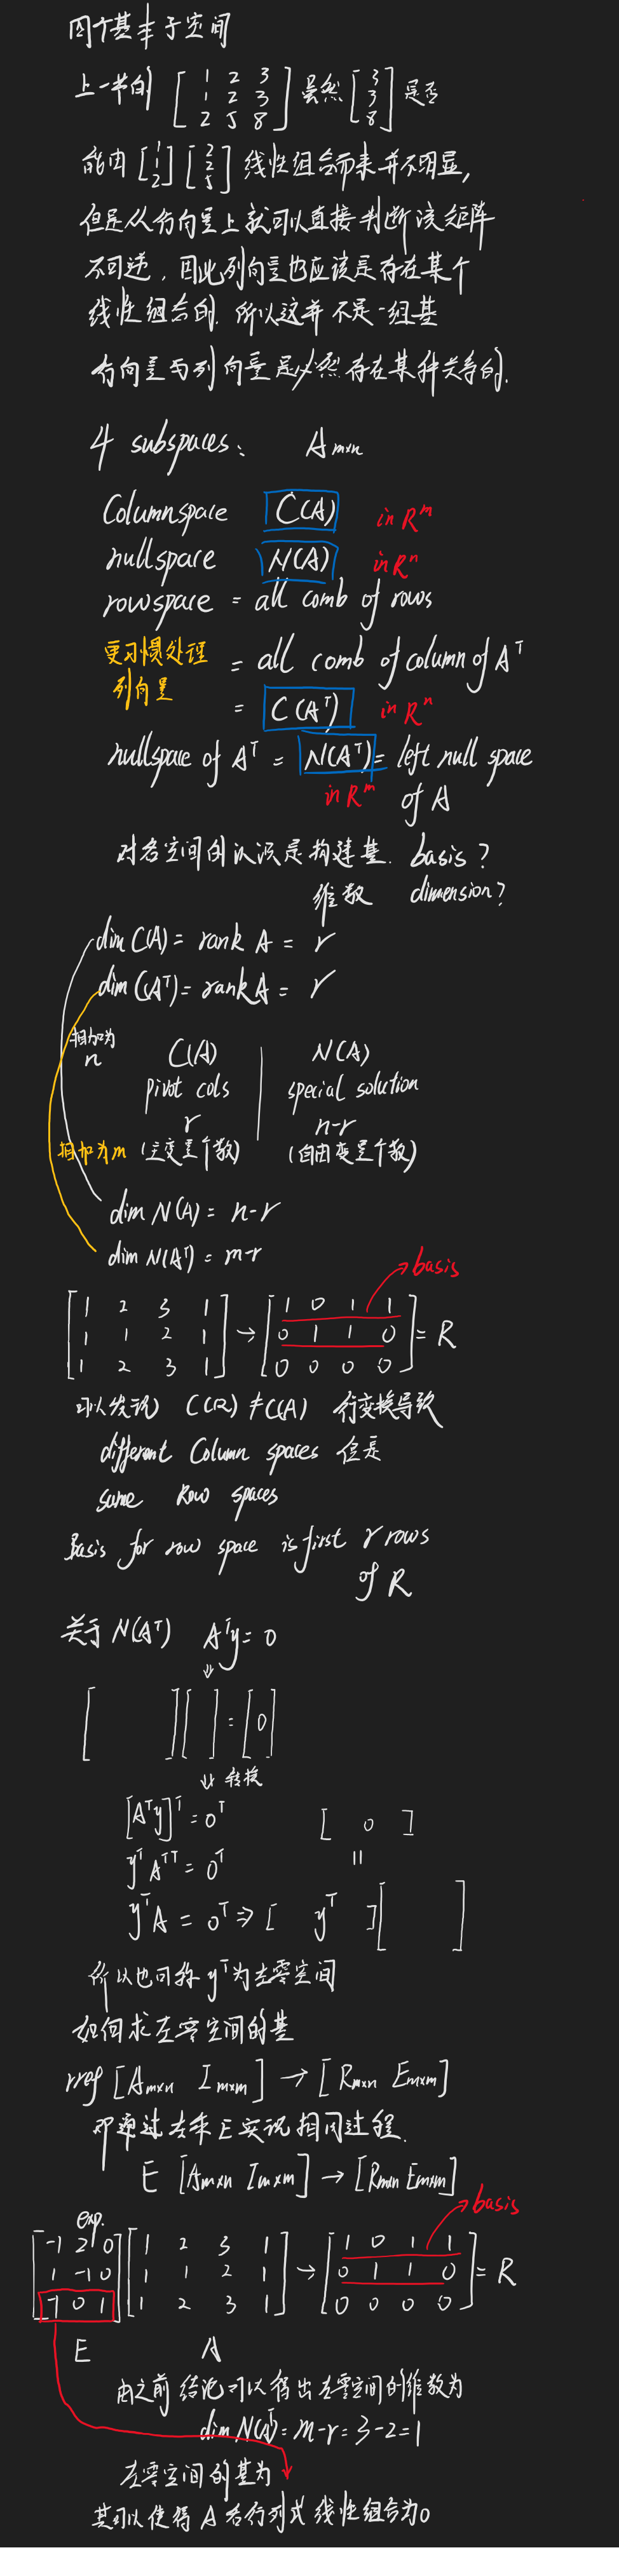 四个基本子空间
上一节的 [1 2 3; 1 2 3; 2 5 8] 虽然 [3; 3; 8] 是否
能由 [1; 1; 2] [2; 2; 5] 线性组合而来并不明显,
但是从行向量上就可以直接判断该矩阵
不可逆, 因此列向量也应该是存在某个
线性组合的. 所以这并不是一组基
行向量与列向量是必然存在某种关系的.
4 subspaces: A m×n
Columnspace C(A) in R^m
nullspace N(A) in R^n
rowspace = all comb of rows
更习惯处理 列向量 = all comb of column of A^T
= C(A^T) in R^n
nullspace of A^T = N(A^T) = left null space
in R^m of A
对各空间的认识是构建基. basis?
维数 dimension?
dim C(A) = rank A = r
dim C(A^T) = rank A = r
相加为 n C(A) | N(A)
pivot cols | special solution
r | n-r
相加为m (主变量个数) | (自由变量个数)
dim N(A) = n-r
dim N(A^T) = m-r
basis
[1 2 3 1; 1 1 2 1; 1 2 3 1] → [1 0 1 1; 0 1 1 0; 0 0 0 0] = R
可以发现 C(R) ≠ C(A) 行变换导致
different Column spaces 但是
same Row spaces
Basis for row space is first r rows
of R
关于 N(A^T) A^T y = 0
⇓
[ ] [ ] = [0]
⇓ 转换
[A^T y]^T = 0^T [ 0 ]
y^T A^TT = 0^T =
y^T A = 0^T ⇒ [ y^T ] [ ]
所以也可称 y^T 为左零空间
如何求左零空间的基
rref [A m×n I m×m] → [R m×n E m×m]
即通过左乘E实现相同过程.
E [A m×n I m×m] → [R m×n E m×m]
exp. basis
[-1 2 0; 1 -1 0; -1 0 1] [1 2 3 1; 1 1 2 1; 1 2 3 1] → [1 0 1 1; 0 1 1 0; 0 0 0 0] = R
E A
由之前结论可以得出左零空间的维数为
dim N(A^T) = m-r = 3-2 = 1
左零空间的基为
其可以使得 A 各行列式线性组合为0